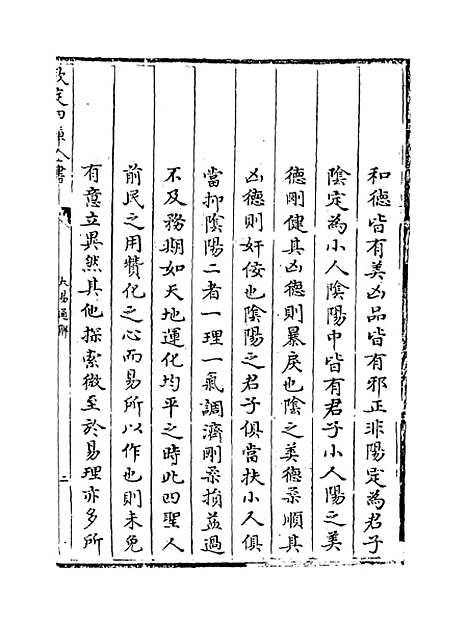 和德皆有美凶品皆有邪正非陽定為君子
陰定為小人陰陽中皆有君子小人陽之美
德剛健其凶德則暴戾也陰之美德柔順其
凶德則奸佞也陰陽之君子俱當扶小人俱
當抑陰陽二者一理一氣調濟剛柔損益過
不及務期如天地運化均平之時此四聖人
前民之用贊化之心而易所以作也則未免
有意立異然其他探索微至於易理亦多所
欽定四庫全書
大易通解
二